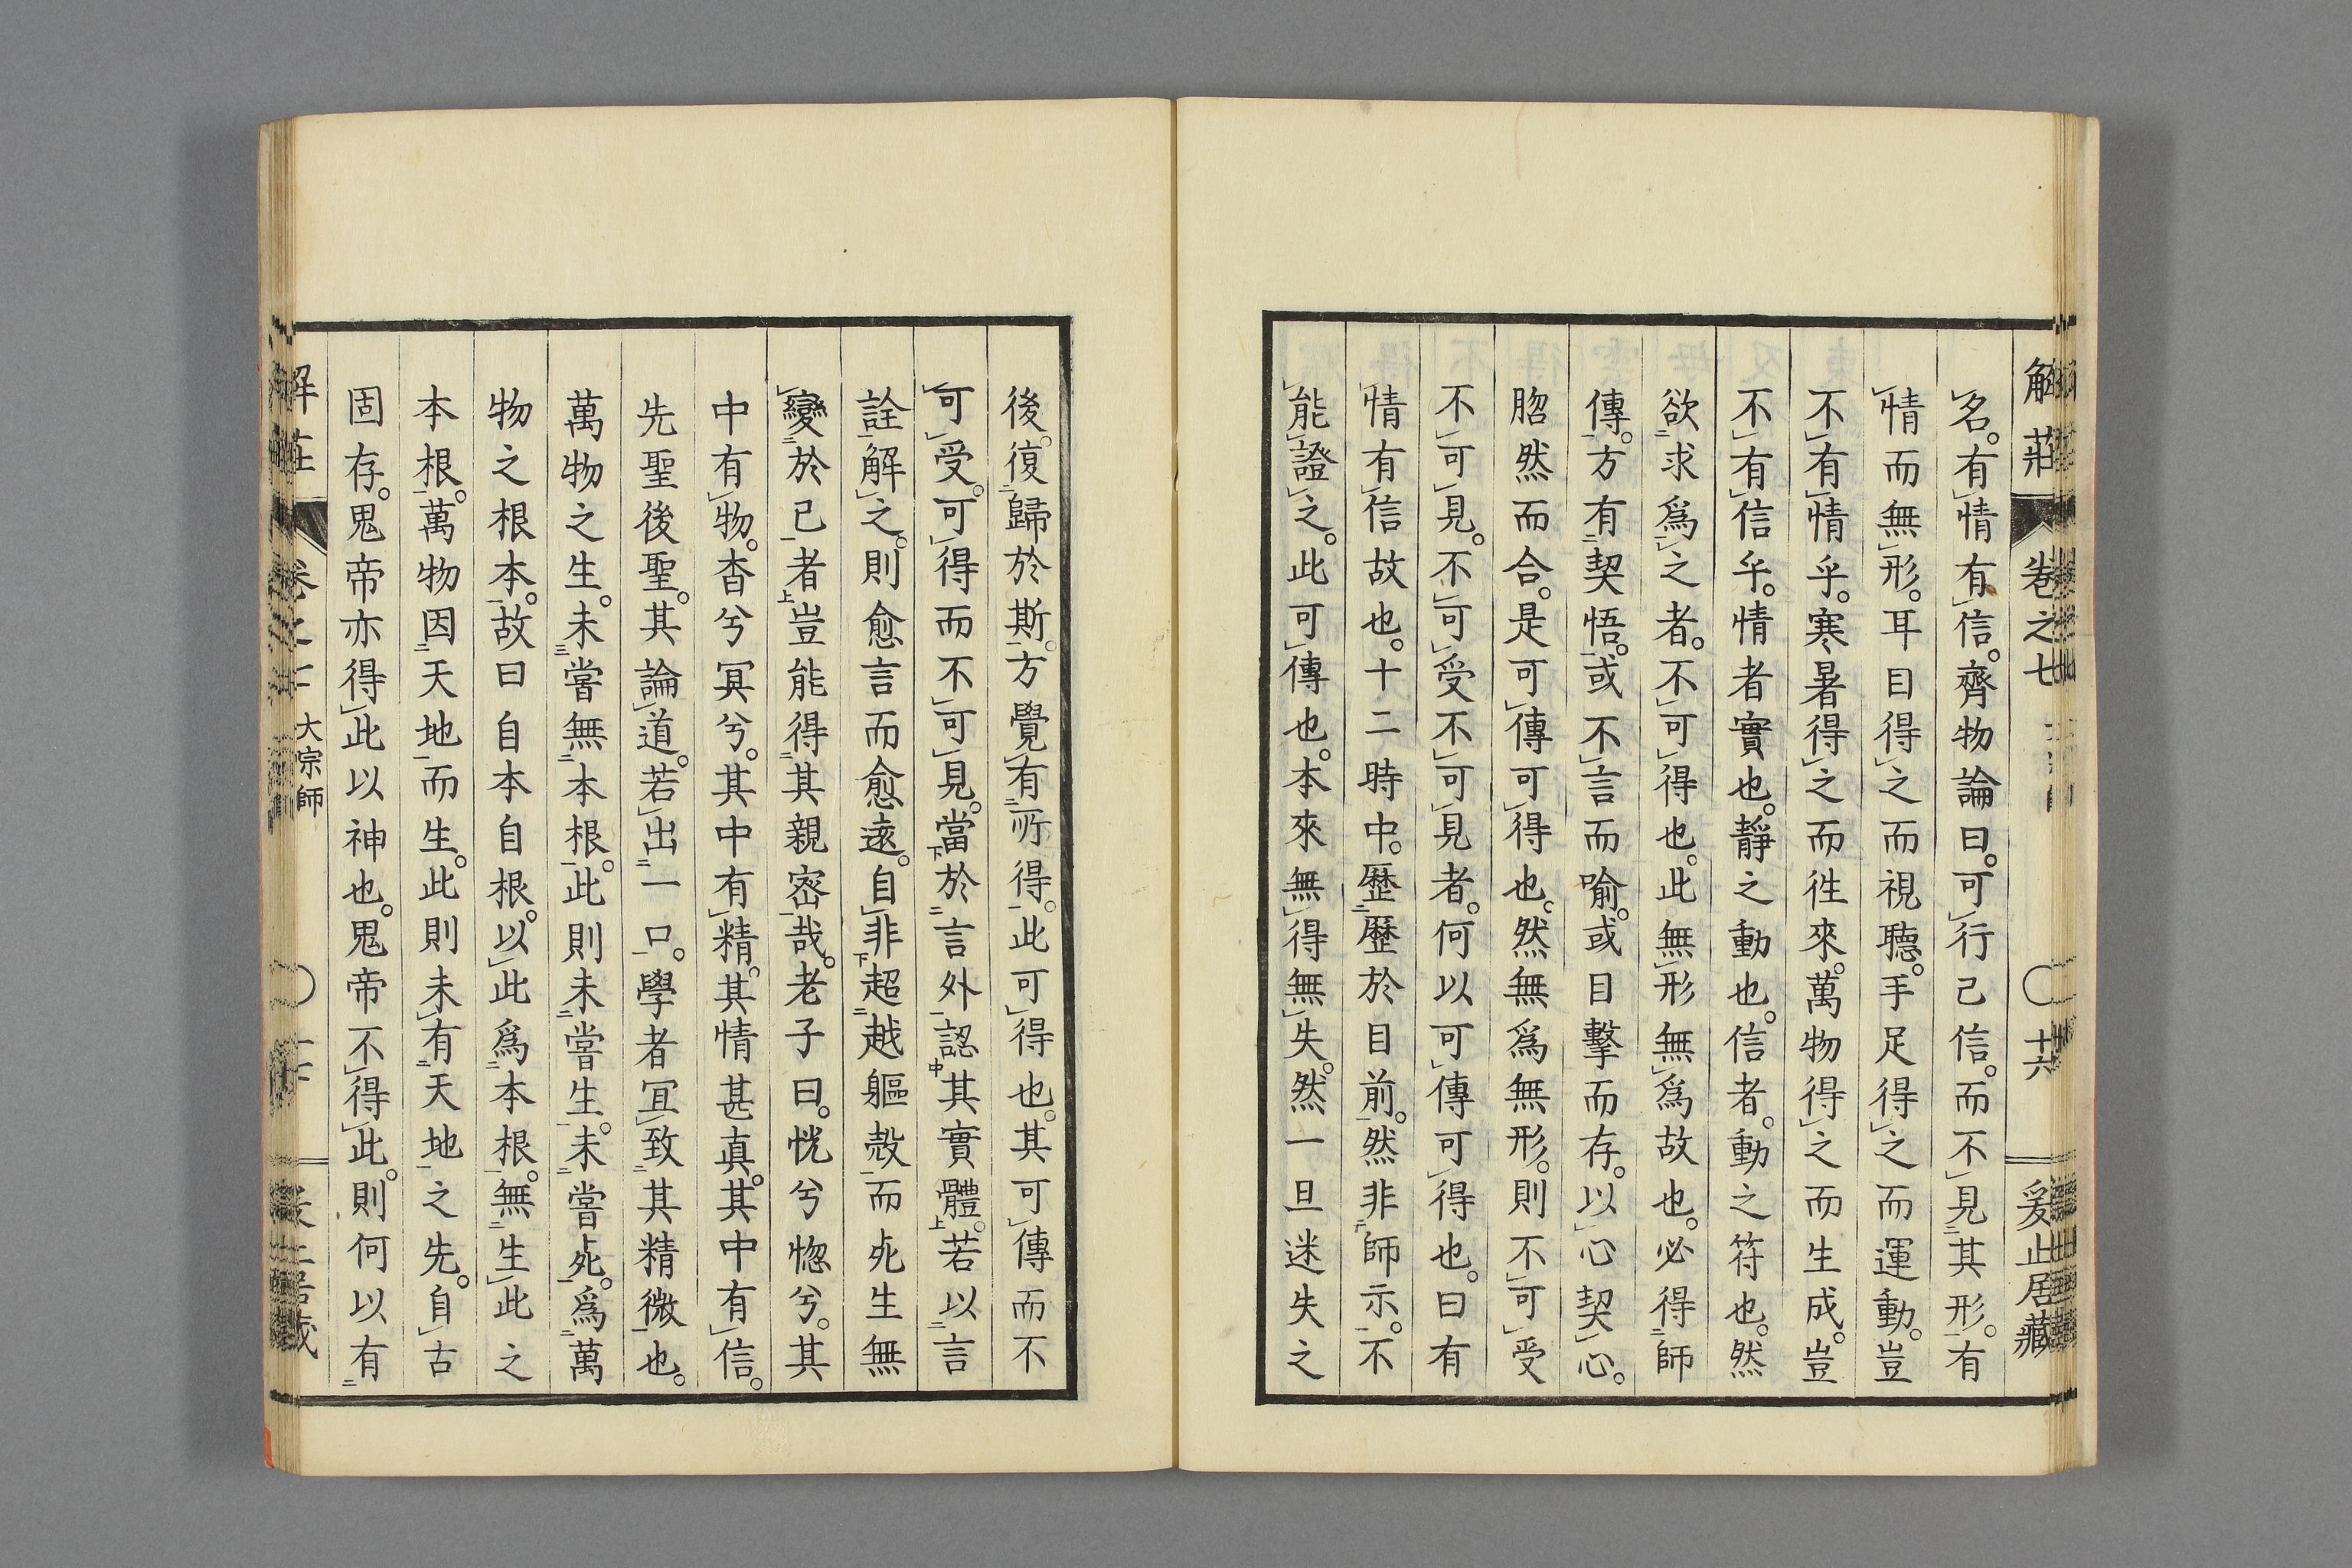 解莊 卷之七 十六 爰止居藏
名。有情有信。齊物論曰。可行己信。而不見其形。有
情而無形。耳目得之而視聽。手足得之而運動。豈
不有情乎。寒暑得之而徃來。萬物得之而生成。豈
不有信乎。情者實也。靜之動也。信者。動之符也。然
欲求爲之者。不可得也。此無形無爲故也。必得師
傳。方有契悟。或不言而喻。或目擊而存。以心契心。
䏚然而合。是可傳可得也。然無爲無形。則不可受
不可見。不可受不可見者。何以可傳可得也。曰有
情有信故也。十二時中。歷歷於目前。然非師示。不
能證之。此可傳也。本來無得無失。然一旦迷失之
後。復歸於斯。方覺有所得。此可得也。其可傳而不
可受。可得而不可見。當於言外認其實體。若以言
詮解之。則愈言而愈遠。自非超越軀殼而死生無
變於己者豈能得其親密哉。老子曰。恍兮惚兮。其
中有物。杳兮冥兮。其中有精。其情甚真。其中有信。
先聖後聖。其論道。若出一口。學者宜致其精微也。
萬物之生。未嘗無本根。此則未嘗生。未嘗死。爲萬
物之根本。故曰自本自根。以此爲本根。無生此之
本根。萬物因天地而生。此則未有天地之先。自古
固存。鬼帝亦得此以神也。鬼帝不得此。則何以有
大宗師